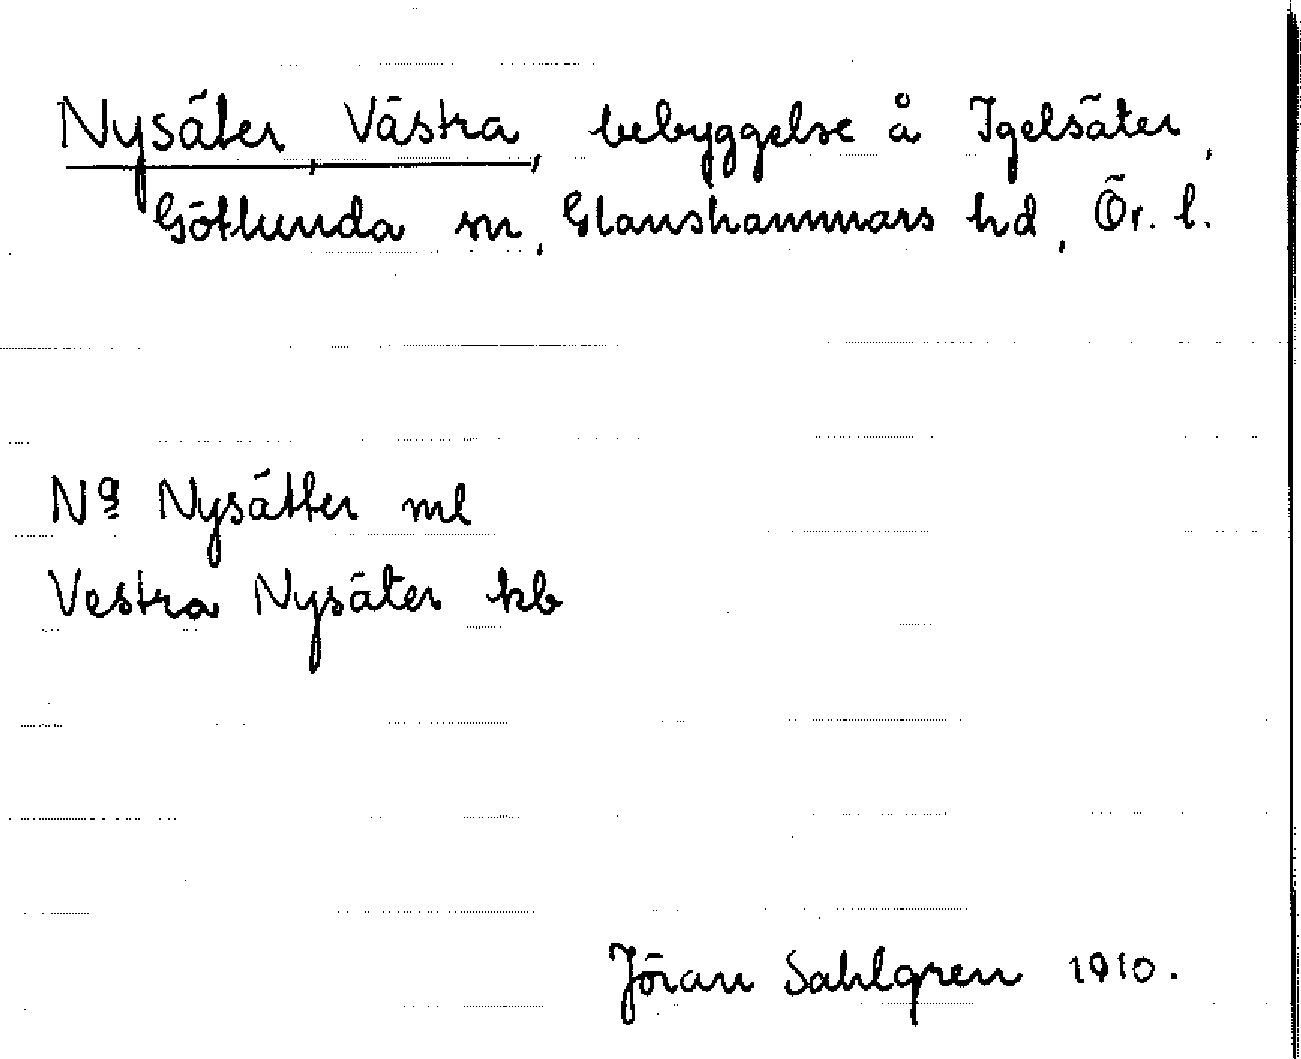 Nysäter, Västra, bebyggelse å Igelsäter,
Götlunda sn, Glanshammars hd, Ör. l.
No Nysätter ml
Vestra Nysäter kb
Jöran Sahlgren 1910.